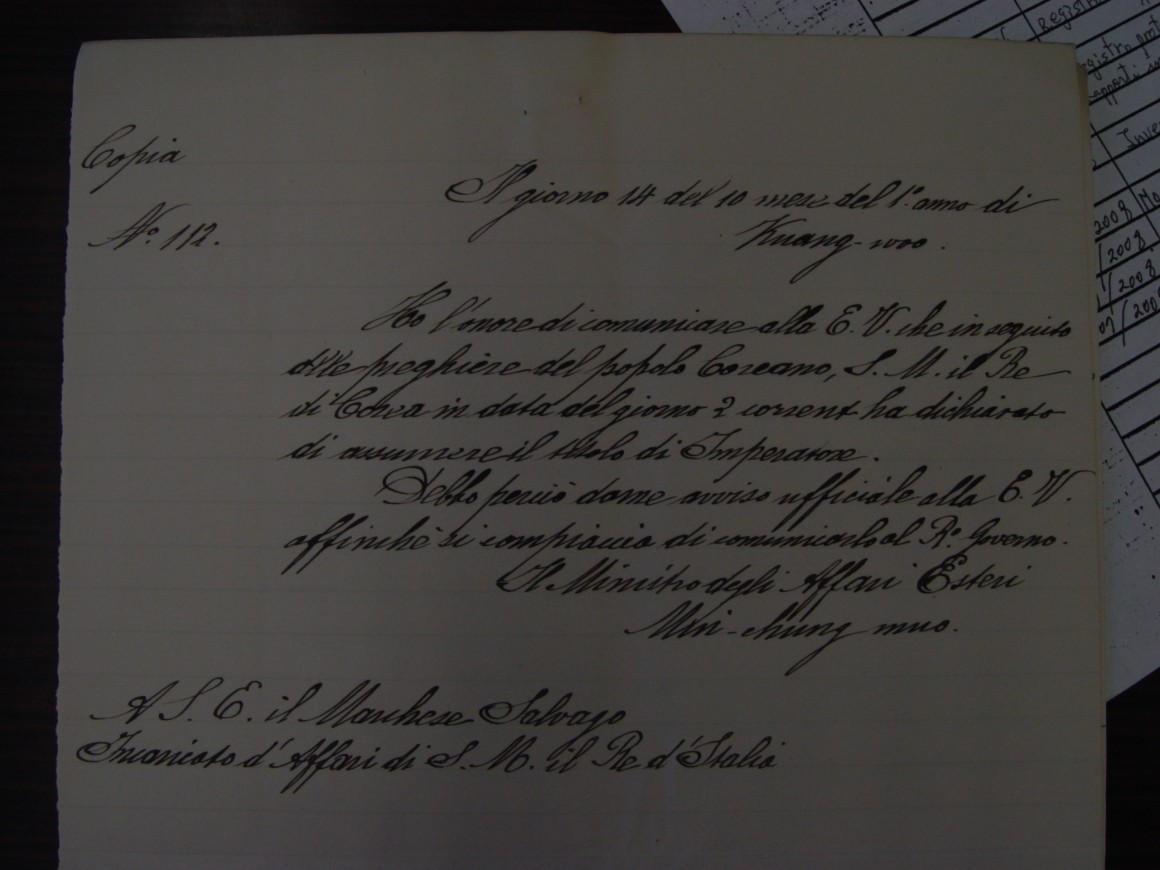 Copia
Il giorno 14 del 10 mese del 1º anno di
Nº 112.
Kuang-woo.
Ho l'onore di comunicare alla E. V. che in seguito
alle preghiere del popolo Coreano, S. M. il Re
di Corea in data del giorno 2 corrent ha dichiarato
di assumere il titolo di Imperatore.
Debbo perciò darne avviso ufficiale alla E. V.
affinchè si compiaccia di comunicarlo al Rº Governo.
Il Ministro degli Affari Esteri
Min-chung muo.
A S. E. il Marchese Salvago
Incaricato d'Affari di S. M. il Re d'Italia
registro
rapporti
Inve
2008
/2008
1/2008
07/2008